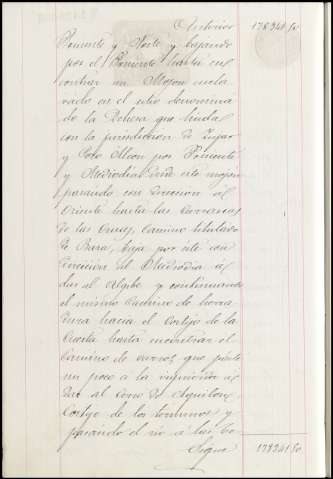 Anterior 178341 50
Poniente y Norte y bajando
por el Poniente hasta en
contrar un Mojon encla
vado en el sitio denomina
de la Dehesa que linda
con la jurisdiccion de Zujar
y Pozo Alcon por Poniente
y Mediodia. Desde este mojon
pasando con direccion al
Oriente hasta las
de las Cruces, camino titulado
de Baza, baja por este con
direccion al Mediodia á
dar al Algibe y continuando
el mismo Camino de herra
dura hacia el Cortijo de la
Cuesta hasta encontrar el
Camino de carros, que parte
un poco á la izquierda á
dar al Cerro de
Cortijo de los y
pasando el rio á las
Sigue 178341 50